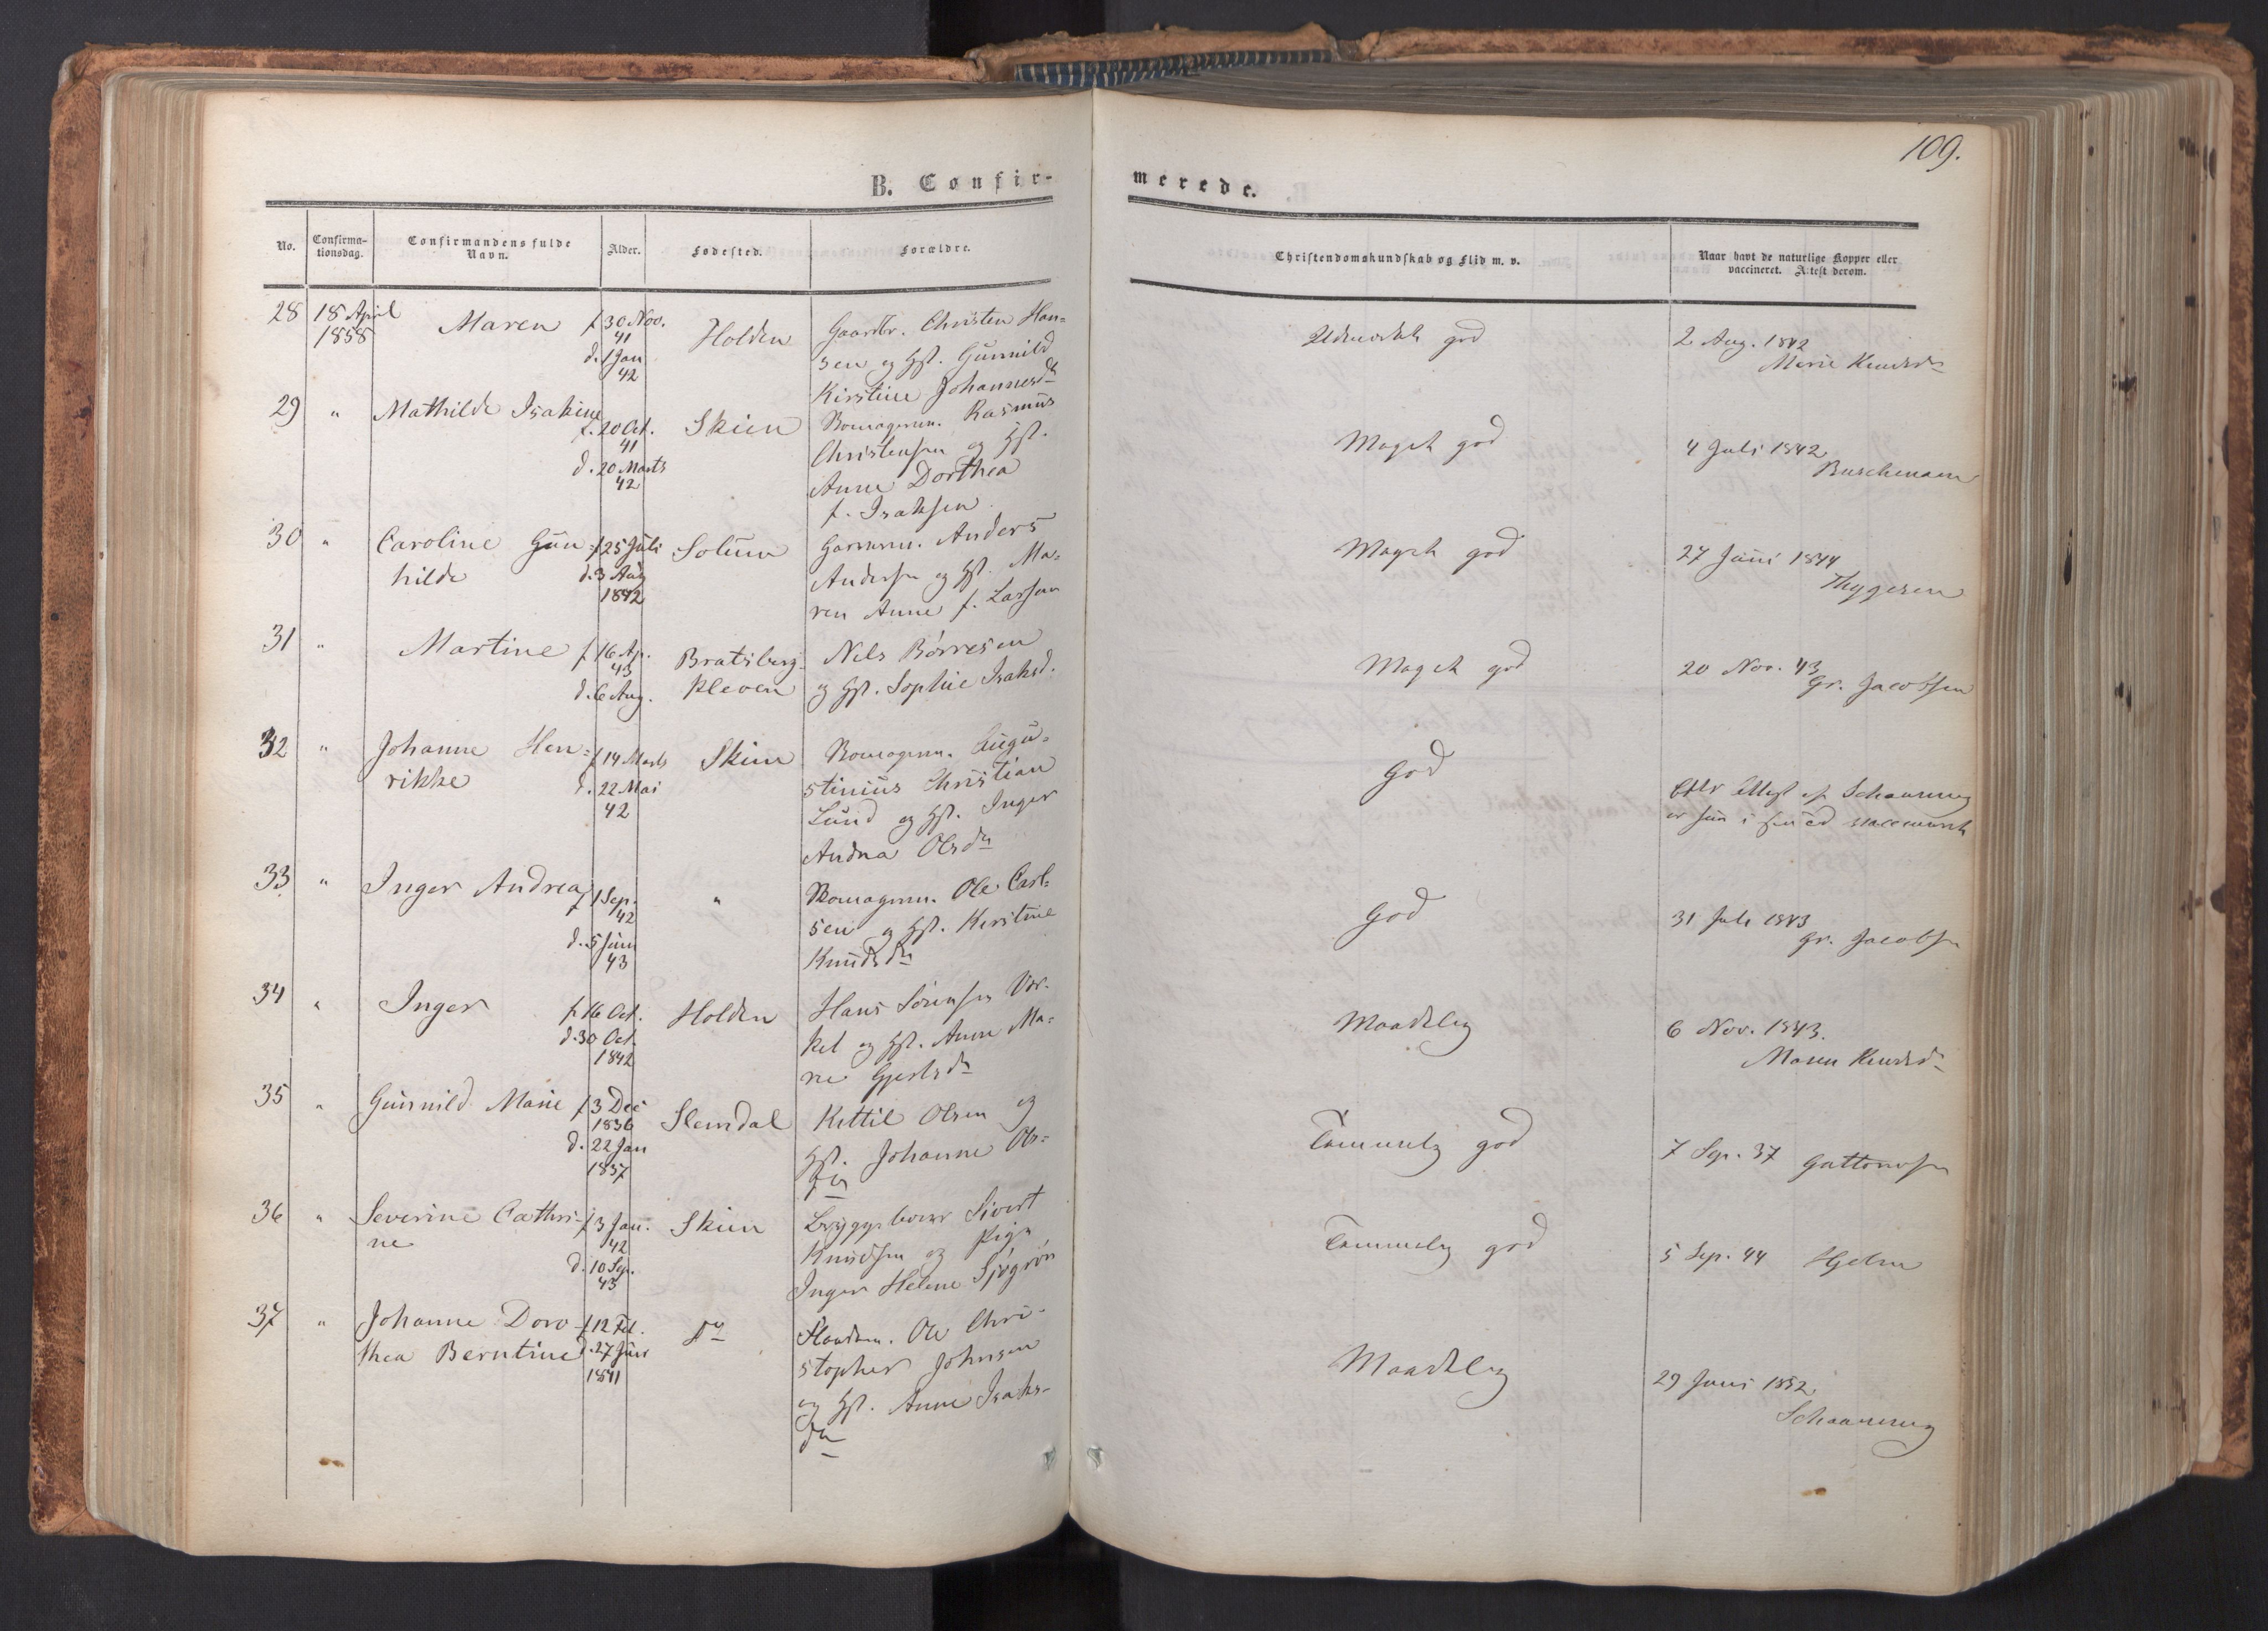 109.
B. Confir-
merede.
No.
Confirma-
tionsdag.
Confirmandens fulde
Navn.
Alder.
Fødested.
Forældre.
Christendomskundskab og Flid m. v.
Naar havt de naturlige Kopper eller
vaccineret. Attest derom.
28 18 April 1858 Maren f. 30 Nov. 41 d. 1 Jan 42 Holden
Gaardbr. Christen Han=
sen og Hst. Gunnild
Kirstine Johannesdr
Udmærkt god
2. Aug. 1842
Marie Knudsdr
29 " Mathilde Isakine f. 20 Oct. 41 d. 20 Marts 42 Skien
Rasmus
Christensen og Hst.
Anne Dorthea
f. Isaksen
Meget god
4 Juli 1842
Buschmann
30 " Caroline Gun= f 25 Juli Solum
hilde d. 3 Aug 1842
Anders
Andersen og Hst. Ma=
ren Anne f. Larsen
Meget god
27 Juni 1844
Thygesen
31 " Martine f 16 Ap. 43 d. 6 Aug. Bratsberg
kleven
Nels Börresen
og Hst. Sophie Isaksd.
Meget god
20 Nov. 43
Gr. Jacobsen
32 " Johanne Hen= f 14 Marts Skien
rikke d. 22 Mai 42
Augu=
stinius Christian
Lund og Hst. Inger
Andrea Olsdr
God
Schaanning
33 " Inger Andrea f 1 Sep. 42 d. 5 Juni 43 "
Ole Carl=
sen og Hst. Kirstine
Knudsdr
God
31 Juli 1843
Gr. Jacobsen
34 " Inger f. 16 Oct. d. 30 Oct. 1842 Holden
Hans Sörensen Vær=
ket og Hst. Anne Ma=
rie Gjertsdr
Maadelig
6 Nov. 1843.
Maren Knudsdr
35 " Gunnild Marie f 3 Dec 1836 d. 22 Jan 1837 Slemdal
Kittil Olsen og
Hst. Johanne Ols=
dr
Temmelig god
7 Sep. 37
36 " Severine Cathri- f 3 Jan. 42 Skien
ne d. 10 Sep. 43
Sivert
Knudsen og Pige
Inger Helene
Temmelig god
5 Sep. 44 Hjelm
37 " Johanne Doro- f 12 Feb. Do
thea Berntine d. 27 Juni 1841
Ole Chri-
stopher Johnsen
og Hst. Anne Isaks-
dr
Maadelig
29 Juni 1852.
Schaanning